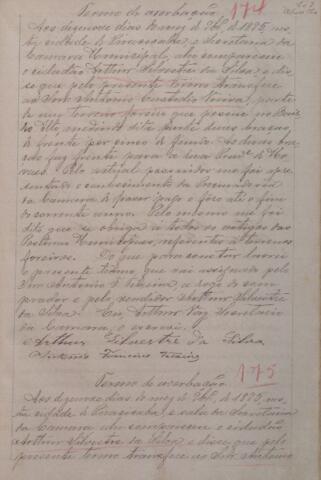 Termo de averbação 174
Aos dezenove dias do mez de 7bro de 1895, nes-
ta cidade de Piracicaba, e Secretaria da
Camara Municipal, ahi compareceu
o cidadão Arthur Silvestre da Silva, e dis-
se que pelo presente termo transfere
ao Snr. Antonio Custodio parte
de um terreno foreiro que possue no Bair-
ro Alto medindo dita parte duas braças
de frente por cinco de fundo. As duas bra-
ças faz frente para a rua
Pelo actual possuidor me foi apre-
sentado o conhecimento da Procuradoria
da Camara de haver pago o fôro até o fim
do corrente anno. Pelo mesmo me foi
dito que se obriga a todos os artigos das
Posturas Municipaes, referentes a terrenos
foreiros. Do que para constar lavrei
o presente termo, que vai assignado pelo
Snr. Antonio F. Teixeira, a rogo do com-
prador e pelo vendedor Arthur Silvestre
da Silva. Eu, Arthur Vaz, Secretario
da Camara, o escrevi.
Arthur Silvestre da Silva
Antonio Francisco Teixeira
Termo de averbação 175
Aos dezenove dias do mez de 7bro de 1895, nes-
ta cidade de Piracicaba, e sala da Secretaria
da Camara ahi compareceu o cidadão
Arthur Silvestre da Silva e disse que pelo
presente termo transfere ao Snr. Antonio